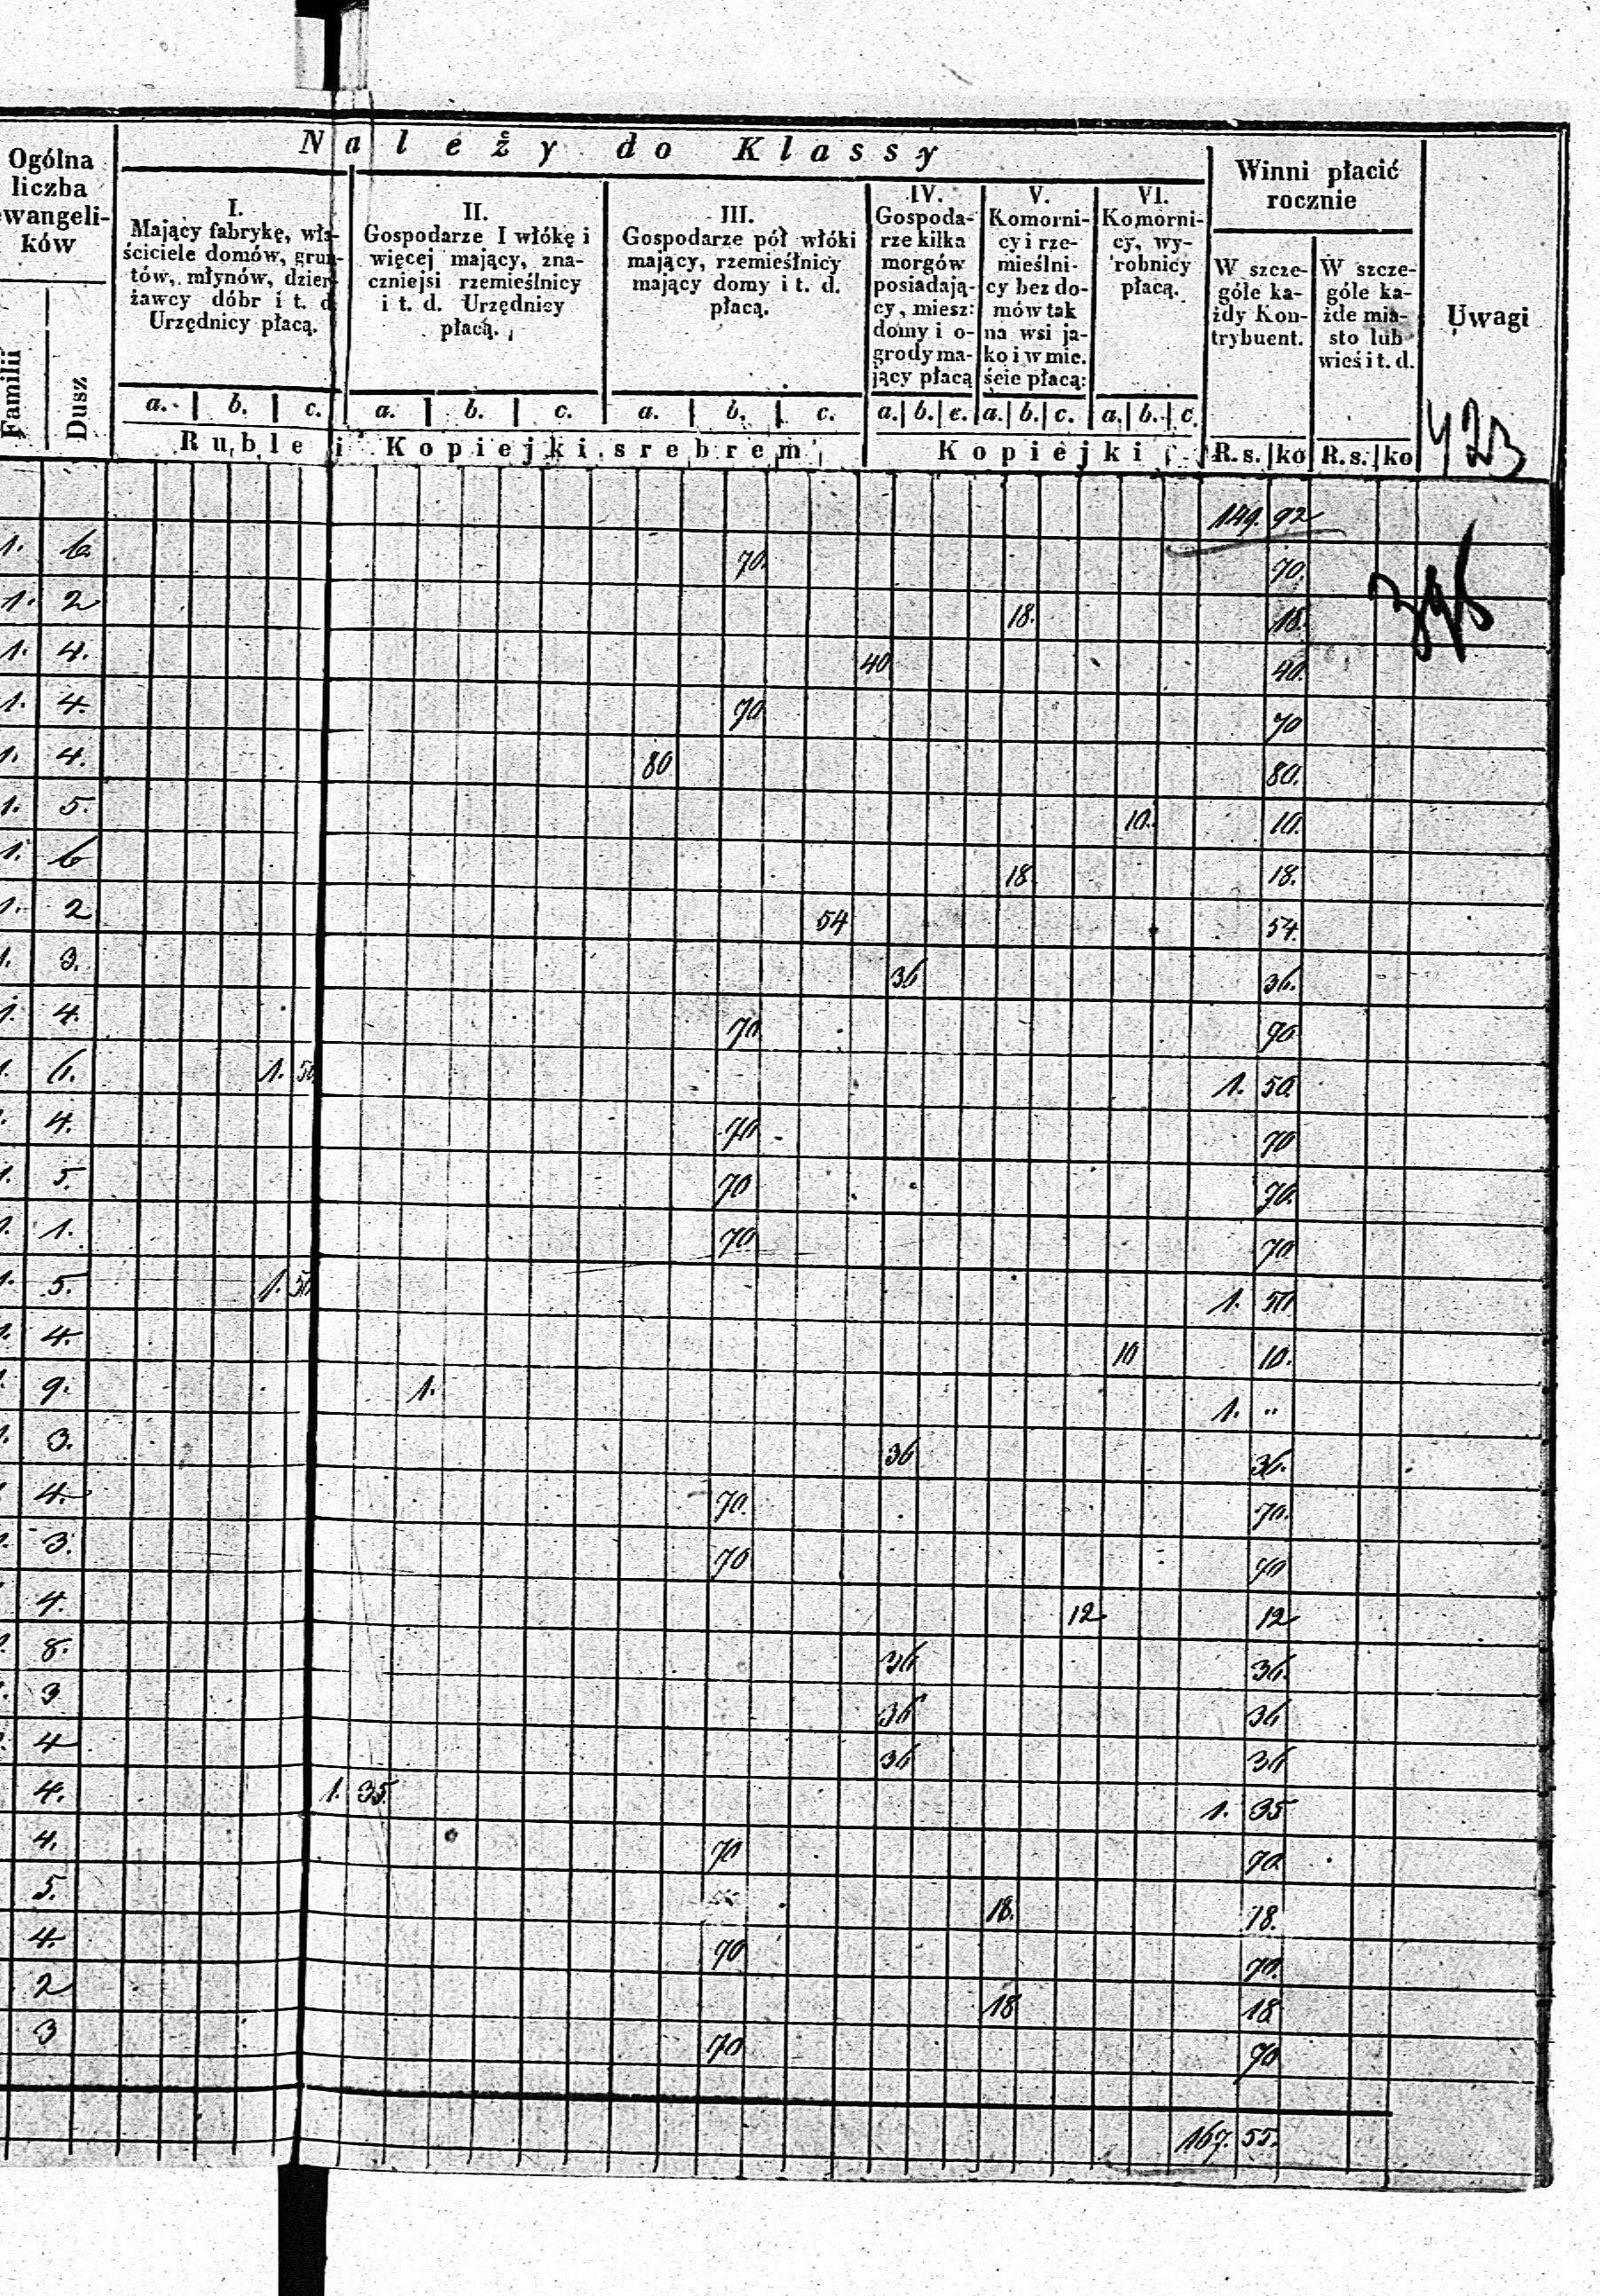 Należy do Klassy
Ogólna liczba ewangelików
Familii
Dusz
I.
Mający fabrykę, właściciele domów, gruntów, młynów, dzierżawcy dóbr i t. d. Urzędnicy płacą.
II.
Gospodarze I włókę i
więcej mający, zna-
czniejsi rzemieślnicy
i t. d. Urzędnicy
płacą.
III.
Gospodarze pół włóki
mający, rzemieślnicy
mający domy i t. d.
płacą.
IV.
Gospoda-
rze kilka
morgów
posiadają-
cy, miesz:
domy i o-
grody ma-
jący płacą
V.
Komorni-
cy i rze-
mieślni-
cy bez do-
mów tak
na wsi ja-
ko i w mie.
ście płacą:
VI.
Komorni-
cy, wy-
robnicy
płacą.
Winni płacić
rocznie
W szcze-
góle ka-
żdy Kon-
trybuent.
W szcze-
góle ka-
żde mia-
sto lub
wieś i t. d.
Uwagi
a. b. c. a. b. c. a. b. c. a. b. c. a. b. c. a. b. c.
Ruble i Kopiejki srebrem Kopiejki R.s. ko R.s. ko
423
149. 92
1. 6. 70. 70.
396
1. 2 18. 18.
1. 4. 40 40.
1. 4. 70 70
1. 4. 80 80.
1. 5. 10. 10.
1. 6 18 18.
1. 2 54 54.
1. 3. 36 36.
1. 4. 70 70
1. 6. 1. 50. 1. 50.
1. 4. 70 70
1. 5. 70 70.
1. 1. 70 70
1. 5. 1. 50 1. 50
1. 4. 10 10.
1. 9. 1. 1. "
1. 3. 36 36.
1. 4. 70. 70.
1. 3. 70 70
4. 12 12
1. 8. 36 36.
3 36 36
4 36 36
4. 1. 35. 1. 35
4. 70 70
5. 18. 18.
4. 70 70.
2 18 18
3 70 70
167. 55.